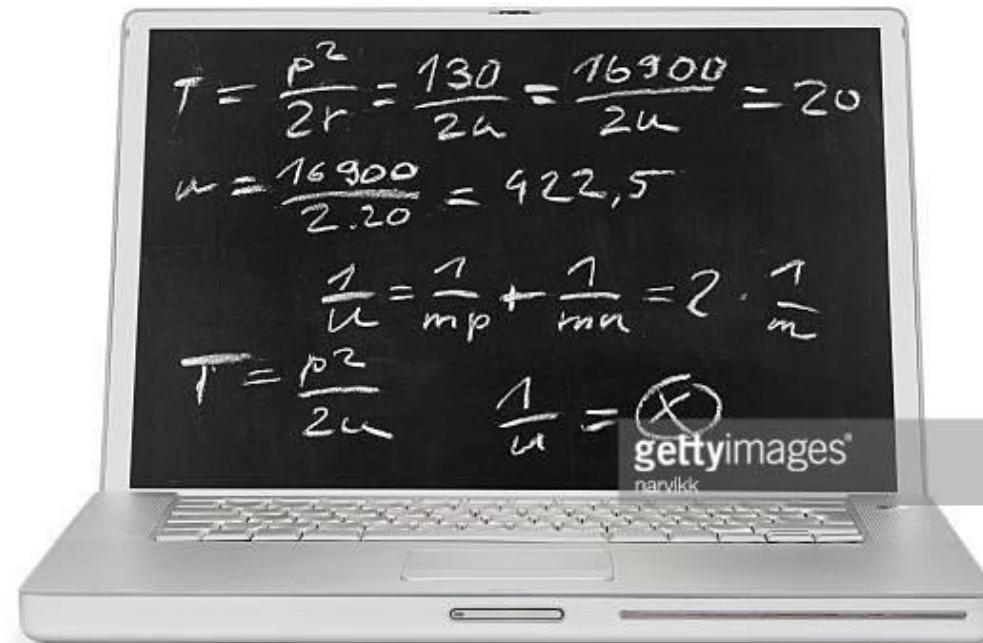 T = p²/2r = 130/2u = 16900/2u = 20
u = 16900/2.20 = 422,5
1/u = 1/mp + 1/mn = 2 · 1/m
T = p²/2u
1/u = ⓧ
gettyimages®
narvikk